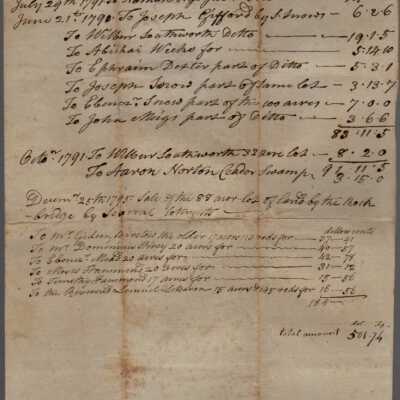 July 29th 1791 To
June 21st 1790 To Joseph Gifford by S. Snow — 6 - 2 - 6
To Wilbur Southworth Ditto — 19 - 1 - 5
To Abishai Weeks for — 5 - 14 - 10
To Ephraim Dexter part of Ditto — 5 - 3 - 1
To Joseph Snow part of same lot — 3 - 13 - 7
To Ebenr Snow part of the 100 acres — 7 - 0 - 0
To John Meigs part of Ditto — 3 - 6 - 6
83 - 11 - 5
Octor 1791 To Wilbur Southworth 32 acre lot — 8 - 2 - 0
To Aaron Norton Ceder Swamp 3 - 15 - 0
Decemr 25th 1795 Sale of the 88 acre lot of land by the Rock
bridge by
dollars cents
To Mr the older for — 37 - 41
To Mr 20 acres for — 40 - 57
To Ebenr Mead 20 acres for — 42 - 74
To Moses 20 acres for — 31 - 12
To Timothy Hammond 17 acres for — 15 - 56
To the Reverend Lemuel Lebaron 15 acres & 45 rods for — 16 - 56
Total amount 501 - 74